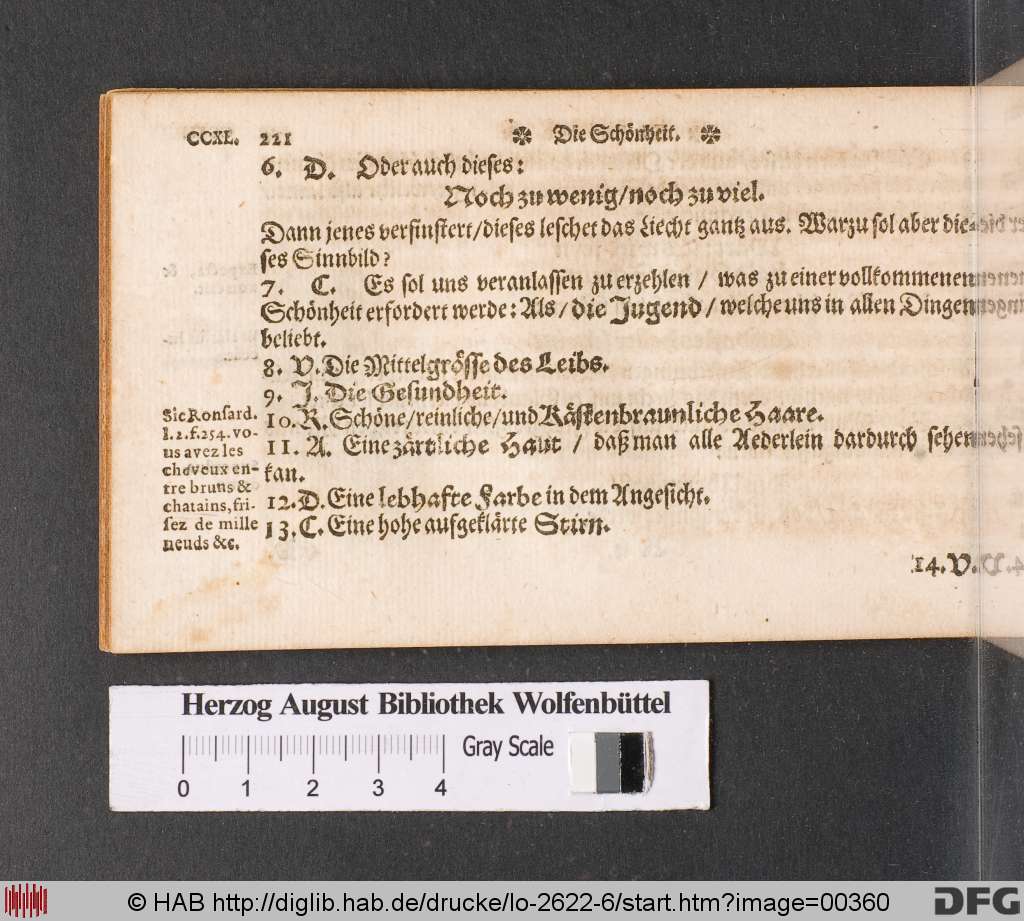 CCXL. 221 Die Schönheit.
6. D. Oder auch dieses:
Noch zu wenig/noch zu viel.
Dann jenes verfinstert/dieses leschet das Liecht gantz aus. Warzu sol aber die-
ses Sinnbild?
7. C. Es sol uns veranlassen zu erzehlen / was zu einer vollkommenen
Schönheit erfordert werde: Als/die Jugend/welche uns in allen Dingen
beliebt.
8. V. Die Mittelgrösse des Leibs.
9. J. Die Gesundheit.
10. R. Schöne/reinliche/und Kästenbraunliche Haare.
11. A. Eine zärtliche Haut / daß man alle Aederlein dardurch sehen
kan.
12. D. Eine lebhafte Farbe in dem Angesicht.
13. C. Eine hohe aufgeklärte Stirn.
Sic Ronsard.
l. 2. f. 254. vo-
us avez les
cheveux en-
tre bruns &
chatains, fri-
sez de mille
neuds &c.
14. V.
Herzog August Bibliothek Wolfenbüttel
Gray Scale
0 1 2 3 4
© HAB http://diglib.hab.de/drucke/lo-2622-6/start.htm?image=00360
DFG